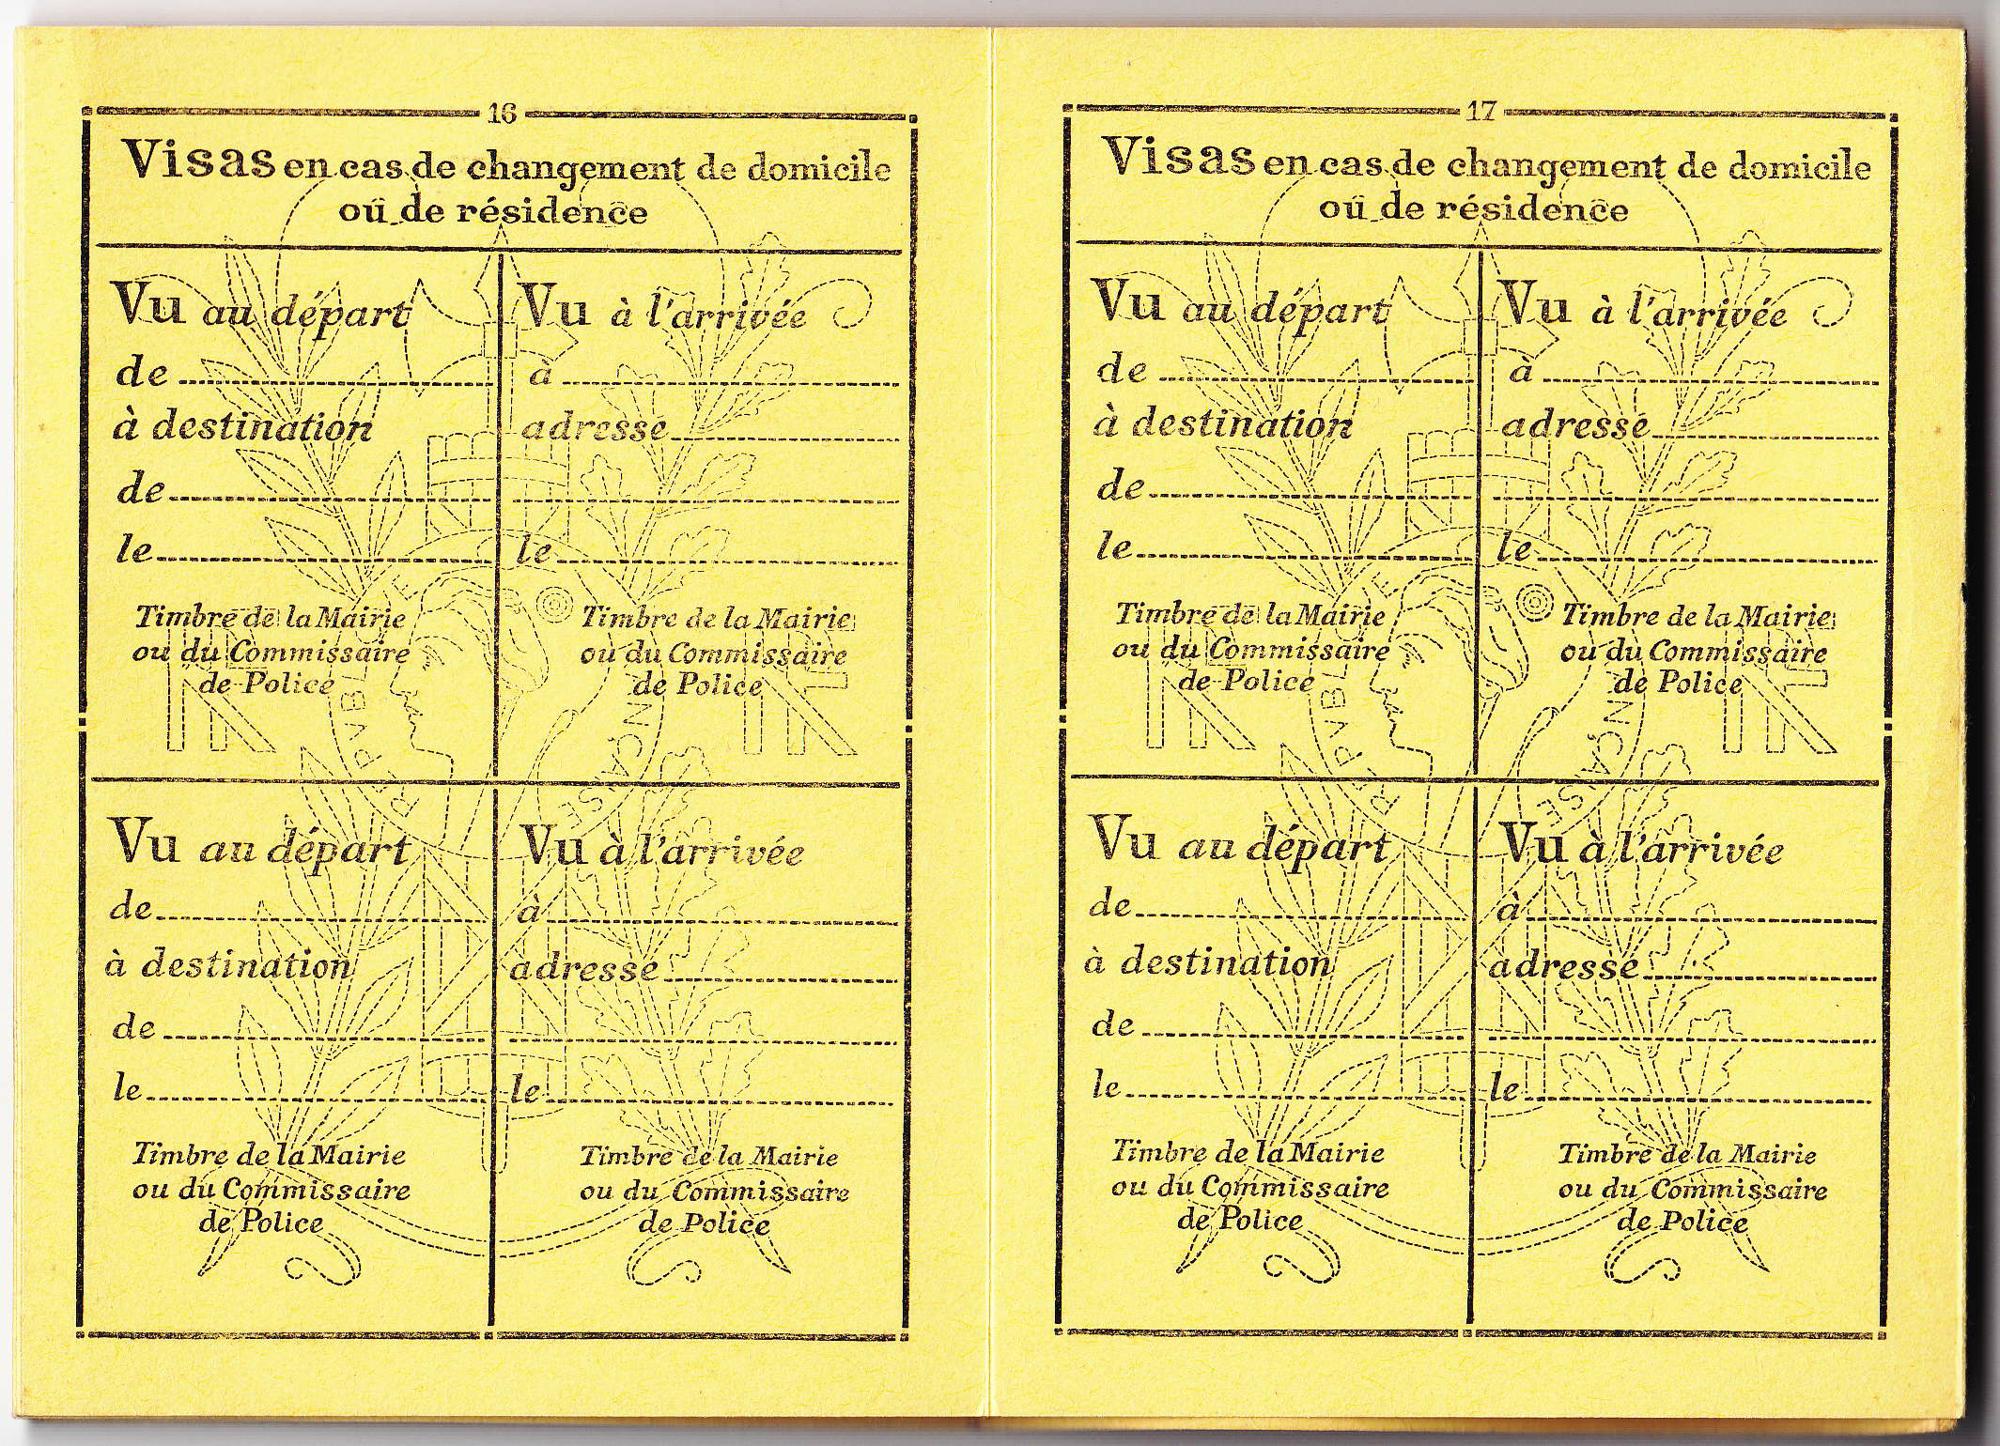 16
Visas en cas de changement de domicile
ou de résidence
Vu au départ
de
à destination
de
le
Timbre de la Mairie
ou du Commissaire
de Police
Vu à l'arrivée
à
adresse
le
Timbre de la Mairie
ou du Commissaire
de Police
Vu au départ
de
à destination
de
le
Timbre de la Mairie
ou du Commissaire
de Police
Vu à l'arrivée
à
adresse
le
Timbre de la Mairie
ou du Commissaire
de Police
RÉPVBLIQVE FRANÇAISE
17
Visas en cas de changement de domicile
ou de résidence
Vu au départ
de
à destination
de
le
Timbre de la Mairie
ou du Commissaire
de Police
Vu à l'arrivée
à
adresse
le
Timbre de la Mairie
ou du Commissaire
de Police
Vu au départ
de
à destination
de
le
Timbre de la Mairie
ou du Commissaire
de Police
Vu à l'arrivée
à
adresse
le
Timbre de la Mairie
ou du Commissaire
de Police
RÉPVBLIQVE FRANÇAISE